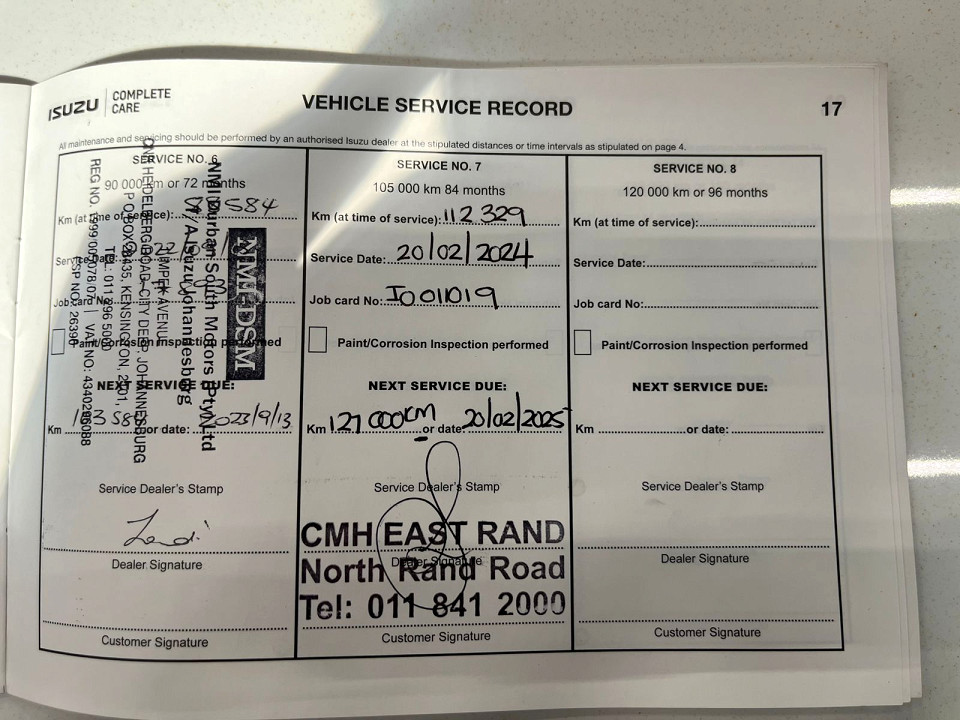 ISUZU COMPLETE CARE
VEHICLE SERVICE RECORD
17
All maintenance and servicing should be performed by an authorised Isuzu dealer at the stipulated distances or time intervals as stipulated on page 4.
SERVICE NO. 6
90 000 km or 72 months
Km (at time of service):
Service Date:
Job card No:
Paint/Corrosion Inspection performed
NEXT SERVICE DUE:
Km or date: 2023/9/13
Service Dealer's Stamp
Dealer Signature
Customer Signature
NMI-DSM
NMI Durban South Motors (Pty) Ltd
T/A Isuzu Johannesburg
CITY DEEP, JOHANNESBURG
P O BOX KENSINGTON, 2101,
TEL: 011 296 5000
REG NO. VAT NO: 4340206088
SERVICE NO. 7
105 000 km 84 months
Km (at time of service): 112 329
Service Date: 20/02/2024
Job card No:
Paint/Corrosion Inspection performed
NEXT SERVICE DUE:
Km 127 000km or date: 20/02/2025
Service Dealer's Stamp
CMH EAST RAND
Dealer Signature
North Rand Road
Tel: 011 841 2000
Customer Signature
SERVICE NO. 8
120 000 km or 96 months
Km (at time of service):
Service Date:
Job card No:
Paint/Corrosion Inspection performed
NEXT SERVICE DUE:
Km or date:
Service Dealer's Stamp
Dealer Signature
Customer Signature